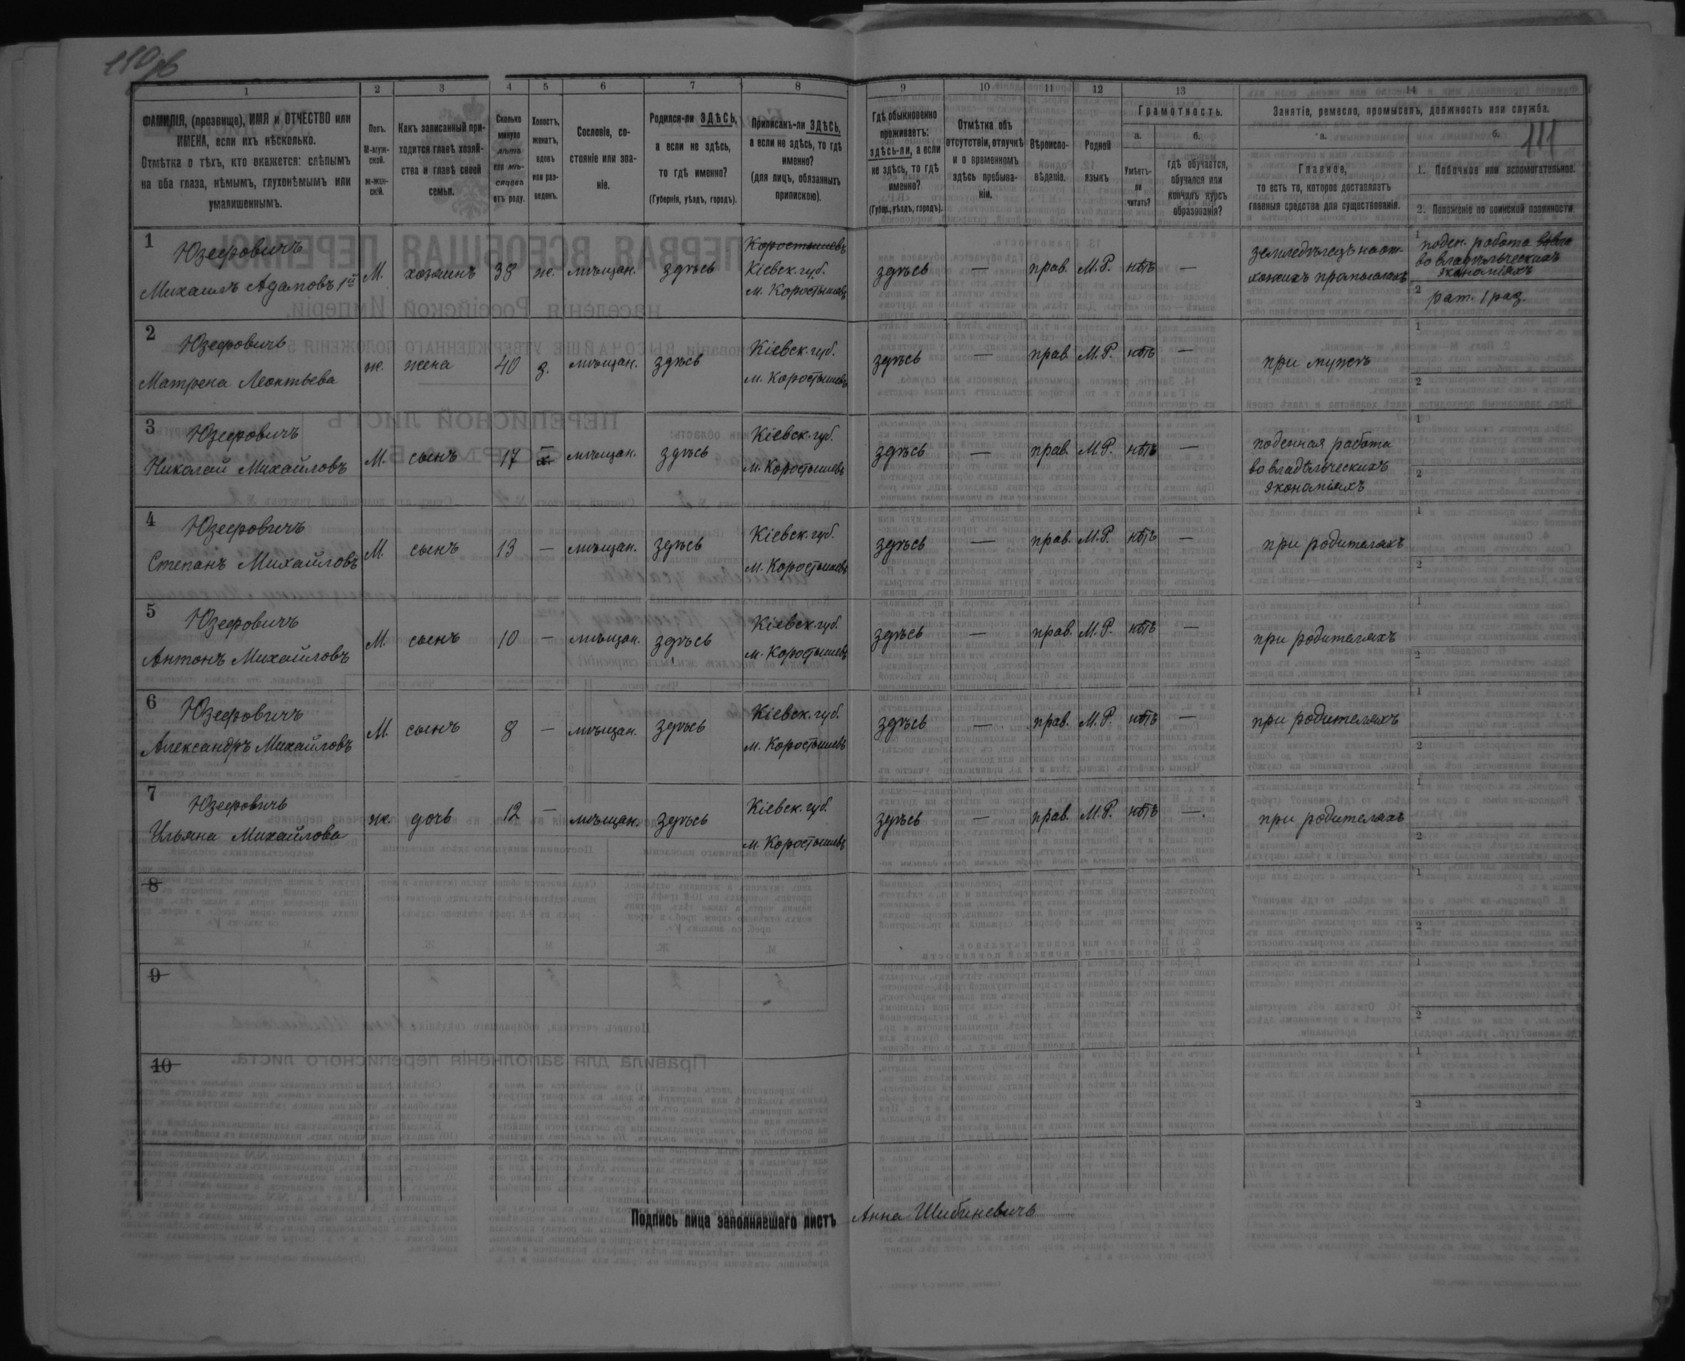 110 об
111
1 2 3 4 5 6 7 8 9 10 11 12 13 14
ФАМИЛІЯ, (прозвище), ИМЯ и ОТЧЕСТВО или
ИМЕНА, если ихъ нѣсколько.
Отмѣтка о тѣхъ, кто окажется: слѣпымъ
на оба глаза, нѣмымъ, глухонѣмымъ или
умалишеннымъ.
Полъ.
М-муж-
ской.
ж-жен-
скій.
Какъ записанный при-
ходится главѣ хозяй-
ства и главѣ своей
семьи.
Сколько
минуло
лѣтъ
или мѣ-
сяцевъ
отъ роду.
Холостъ,
женатъ,
вдовъ
или раз-
веденъ.
Сословіе, со-
стояніе или зва-
ніе.
Родился-ли ЗДѢСЬ,
а если не здѣсь,
то гдѣ именно?
(Губернія, уѣздъ, городъ).
Приписанъ-ли ЗДѢСЬ,
а если не здѣсь, то гдѣ
именно?
(для лицъ, обязанныхъ
припискою).
Гдѣ обыкновенно
проживаетъ:
здѣсь-ли, а если
не здѣсь, то гдѣ
именно?
(Губер., уѣздъ, городъ).
Отмѣтка объ
отсутствіи, отлучкѣ
и о временномъ
здѣсь пребыва-
ніи.
Вѣроиспо-
вѣданіе.
Родной
языкъ
Грамотность.
а. б.
Умѣетъ-
ли
читать?
гдѣ обучается,
обучался или
кончилъ курсъ
образованія?
Занятіе, ремесло, промыселъ, должность или служба.
а. б.
Главное,
то есть то, которое доставляетъ
главныя средства для существованія.
1. Побочное или вспомогательное.
2. Положеніе по воинской повинности
1 Юзефовичъ
Михаилъ Адамовъ 1й М. хозяинъ 38 ж. мѣщан. здѣсь
Коростышевъ
Кіевск. губ.
м. Коростышевъ
здѣсь — прав. М.Р. нѣтъ —
земледѣлецъ на от-
хожихъ промыслахъ
1 поден. работа
во владѣльческихъ
экономіяхъ
2 рат. 1 раз.
2 Юзефовичъ
Матрена Леонтьева ж. жена 40 з. мѣщан. здѣсь
Кіевск. губ.
м. Коростышевъ
здѣсь — прав. М.Р. нѣтъ — при мужѣ
1
2
3 Юзефовичъ
Николай Михайловъ М. сынъ 17 — мѣщан. здѣсь
Кіевск. губ.
м. Коростышевъ
здѣсь — прав. М.Р. нѣтъ —
поденная работа
во владѣльческихъ
экономіяхъ
1
2
4 Юзефовичъ
Степанъ Михайловъ М. сынъ 13 — мѣщан. здѣсь
Кіевск. губ.
м. Коростышевъ
здѣсь — прав. М.Р. нѣтъ — при родителяхъ
1
2
5 Юзефовичъ
Антонъ Михайловъ М. сынъ 10 — мѣщан. здѣсь
Кіевск. губ.
м. Коростышевъ
здѣсь — прав. М.Р. нѣтъ — при родителяхъ
1
2
6 Юзефовичъ
Александръ Михайловъ М. сынъ 8 — мѣщан. здѣсь
Кіевск. губ.
м. Коростышевъ
здѣсь — прав. М.Р. нѣтъ — при родителяхъ
1
2
7 Юзефовичъ
Ульяна Михайлова ж. дочь 12 — мѣщан. здѣсь
Кіевск. губ.
м. Коростышевъ
здѣсь — прав. М.Р. нѣтъ — при родителяхъ
1
2
8
1
2
9
1
2
10
1
2
Подпись лица заполнявшаго листъ Анна Шибиневичъ